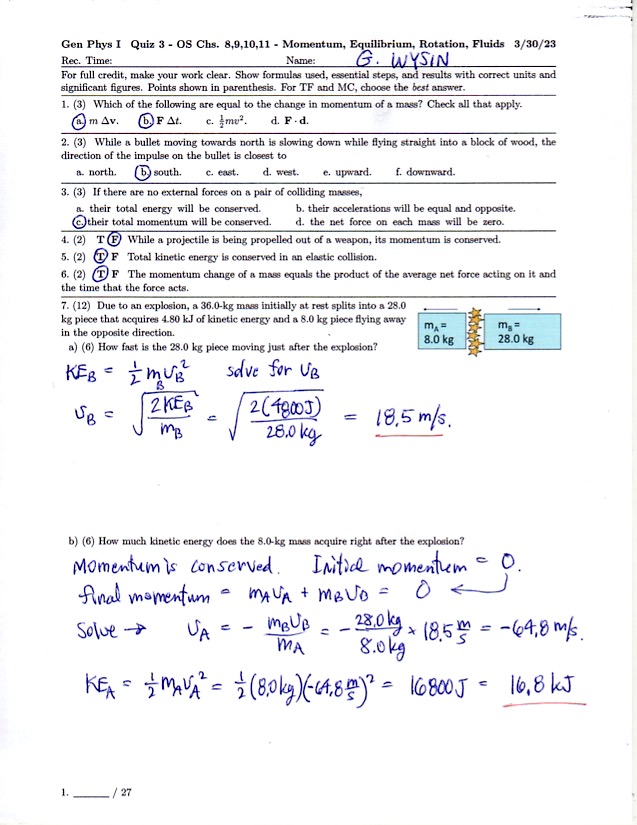 Gen Phys I Quiz 3 - OS Chs. 8,9,10,11 - Momentum, Equilibrium, Rotation, Fluids 3/30/23
Rec. Time: Name: G. WYSIN
For full credit, make your work clear. Show formulas used, essential steps, and results with correct units and
significant figures. Points shown in parenthesis. For TF and MC, choose the best answer.
1. (3) Which of the following are equal to the change in momentum of a mass? Check all that apply.
a. m Δv. b. F Δt. c. ½mv². d. F · d.
2. (3) While a bullet moving towards north is slowing down while flying straight into a block of wood, the
direction of the impulse on the bullet is closest to
a. north. b. south. c. east. d. west. e. upward. f. downward.
3. (3) If there are no external forces on a pair of colliding masses,
a. their total energy will be conserved. b. their accelerations will be equal and opposite.
c. their total momentum will be conserved. d. the net force on each mass will be zero.
4. (2) T F While a projectile is being propelled out of a weapon, its momentum is conserved.
5. (2) T F Total kinetic energy is conserved in an elastic collision.
6. (2) T F The momentum change of a mass equals the product of the average net force acting on it and
the time that the force acts.
7. (12) Due to an explosion, a 36.0-kg mass initially at rest splits into a 28.0
kg piece that acquires 4.80 kJ of kinetic energy and a 8.0 kg piece flying away
in the opposite direction.
m_A = 8.0 kg
m_B = 28.0 kg
a) (6) How fast is the 28.0 kg piece moving just after the explosion?
KE_B = ½ m_B v_B² solve for v_B
v_B = √(2KE_B / m_B) = √(2(4800J) / 28.0 kg) = 18.5 m/s.
b) (6) How much kinetic energy does the 8.0-kg mass acquire right after the explosion?
Momentum is conserved. Initial momentum = 0.
final momentum = m_A v_A + m_B v_B = 0 ←
Solve → v_A = - m_B v_B / m_A = - 28.0 kg / 8.0 kg × 18.5 m/s = -64.8 m/s.
KE_A = ½ m_A v_A² = ½ (8.0 kg)(-64.8 m/s)² = 16800 J = 16.8 kJ
1. ______ / 27